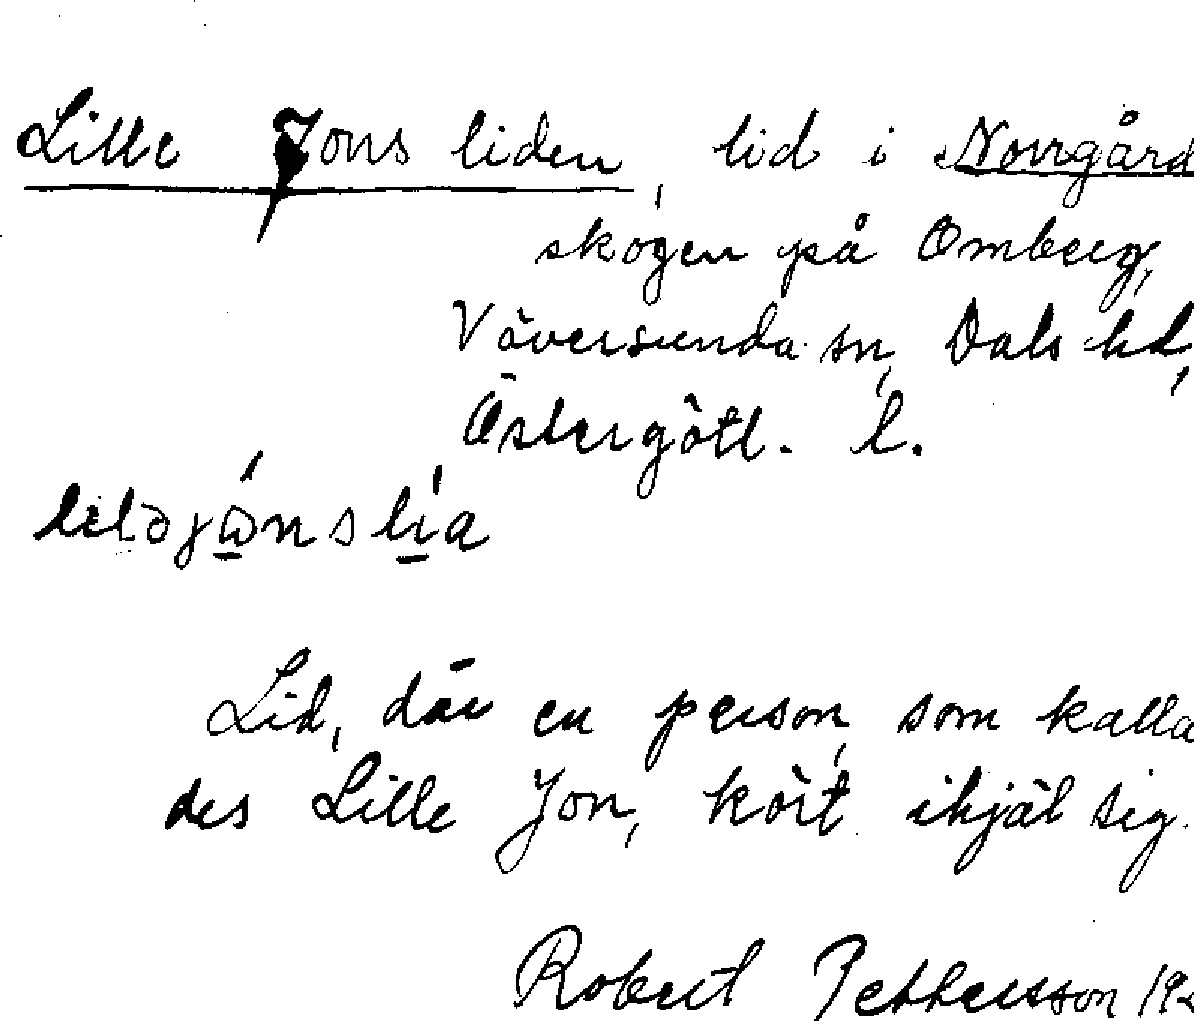 Lille Jons liden, lid i Norrgård
skogen på Omberg,
Väversunda sn, Dals hd,
Östergötl. l.
lıləjώnslı́a
Lid, där en person, som kalla
des Lille Jon, kört ihjäl sig.
Robert Pettersson